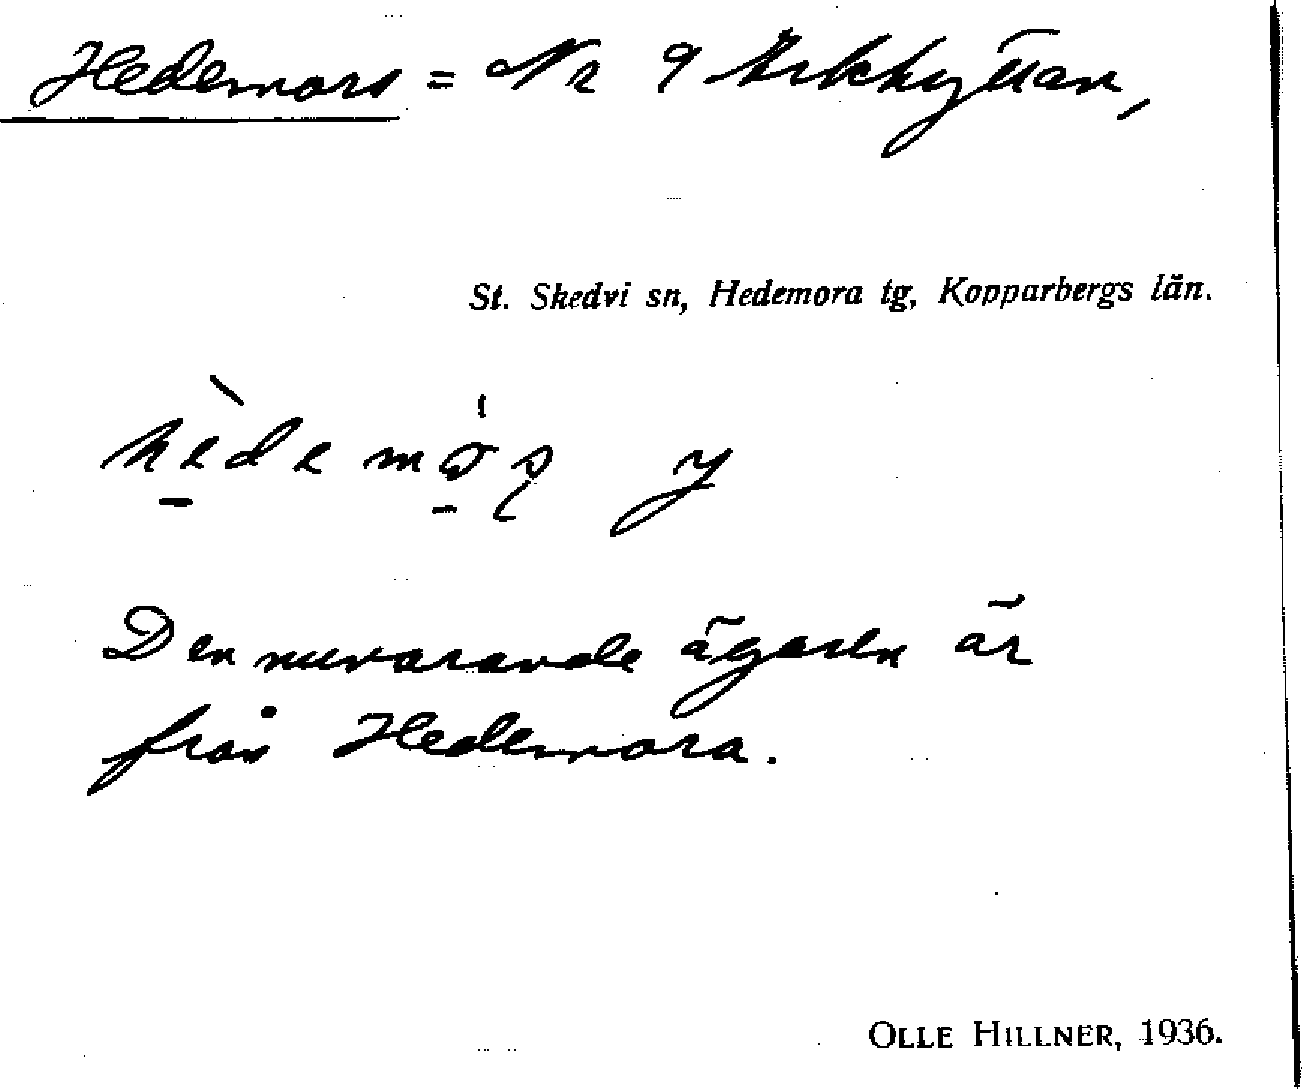 Hedemors = Nr 9 Arkhyttan,
St. Skedvi sn, Hedemora tg, Kopparbergs län.
y
Den nuvarande ägaren är
från Hedemora.
OLLE HILLNER, 1936.